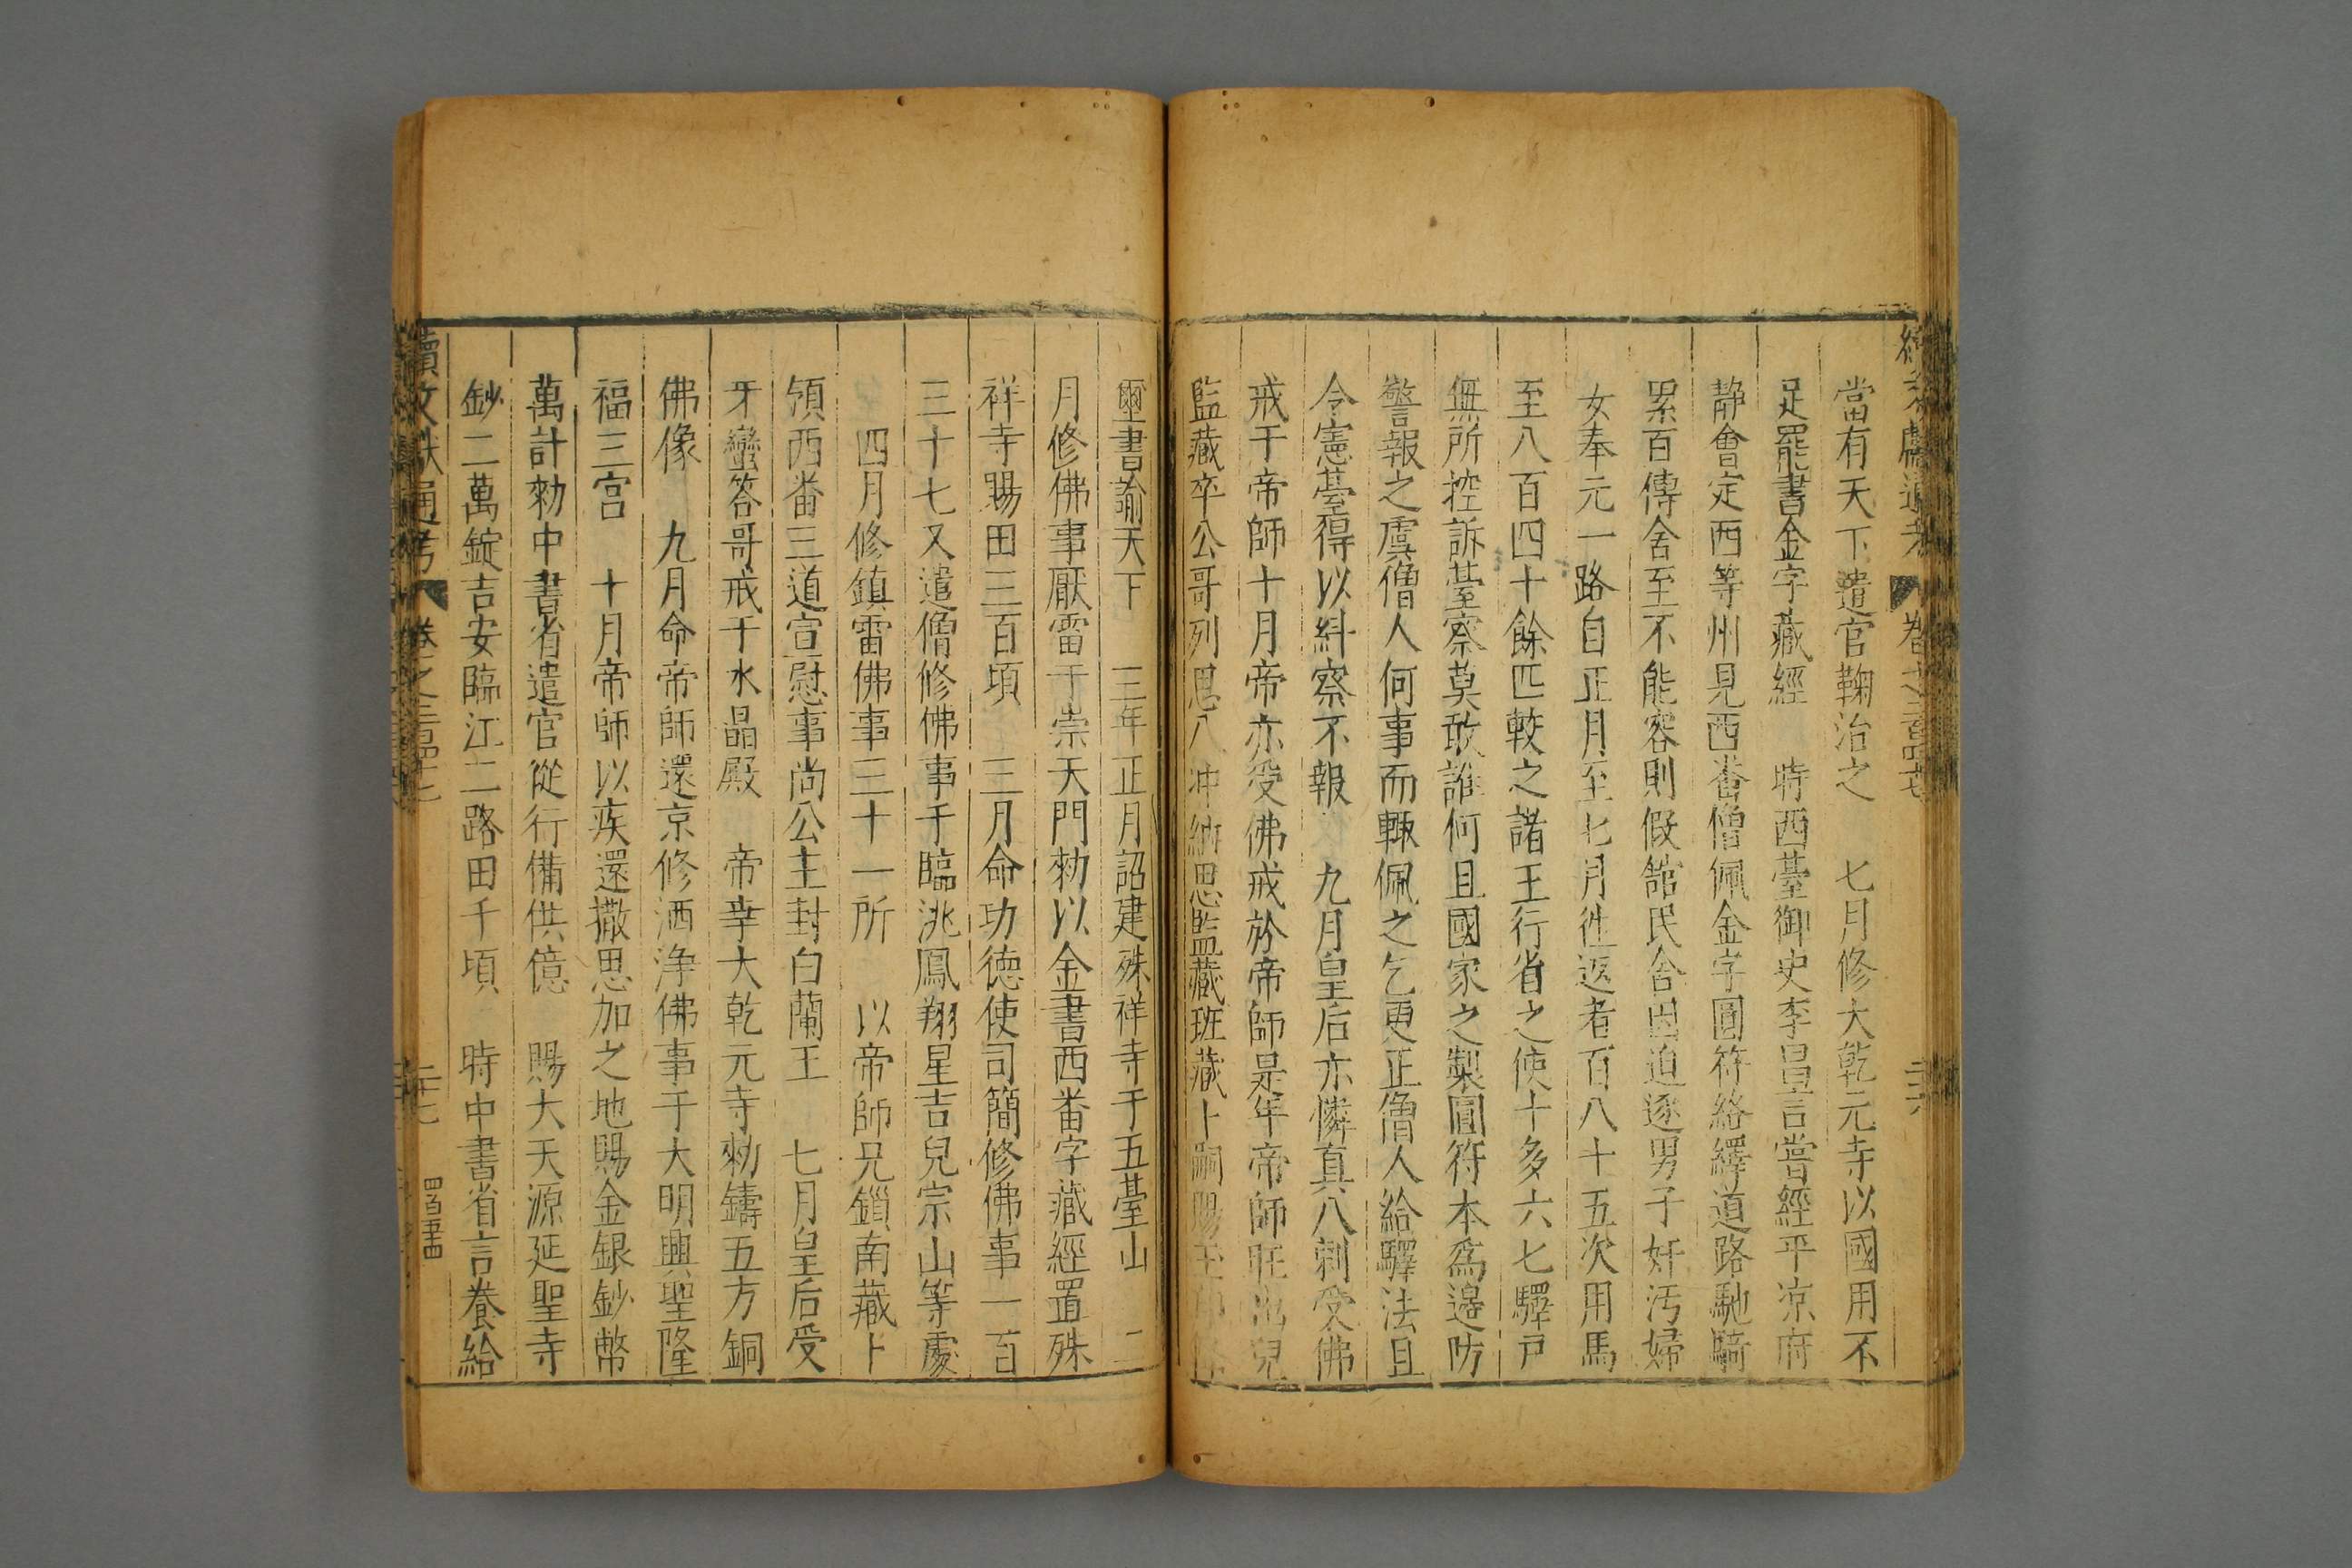 當有天下遣官鞠治之 七月修大乾元寺以國用不
足罷書金字藏經 時西臺御史李昌言嘗經平凉府
静會定西等州見西畨僧佩金字圓符絡繹道路馳騎
累百傳舍至不能容則假舘民舍因迫逐男子奸污婦
女奉元一路自正月至七月徃返者百八十五次用馬
至八百四十餘匹較之諸王行省之使十多六七驛戸
無所控訴臺察莫敢誰何且國家之製圓符本爲邉防
警報之虞僧人何事而輙佩之乞更正僧人給驛法且
令憲䑓得以糾察不報 九月皇后亦憐真八剌受佛
戒于帝師十月帝亦受佛戒於帝師是年帝師旺出兒
監藏卒公哥列思八冲納思監藏班藏卜嗣賜玉印
璽書諭天下 三年正月詔建殊祥寺于五臺山 二
月修佛事厭雷于崇天門勑以金書西畨字藏經置殊
祥寺賜田三百頃 三月命功德使司簡修佛事一百
三十七又遣僧修佛事于臨洮鳳翔星吉兒宗山等處
四月修鎮雷佛事三十一所 以帝師兄鎖南藏卜
領西畨三道宣慰事尚公主封白蘭王 七月皇后受
牙蠻答哥戒于水晶殿 帝幸大乾元寺勑鑄五方銅
佛像 九月命帝師還京修洒浄佛事于大明興聖隆
福三宫 十月帝師以疾還撒思加之地賜金銀鈔幣
萬計勑中書省遣官從行備供億 賜大天源延聖寺
鈔二萬錠吉安臨江二路田千頃 時中書省言養給
續文獻通考 卷之二百四十七 二十七 四百五十四